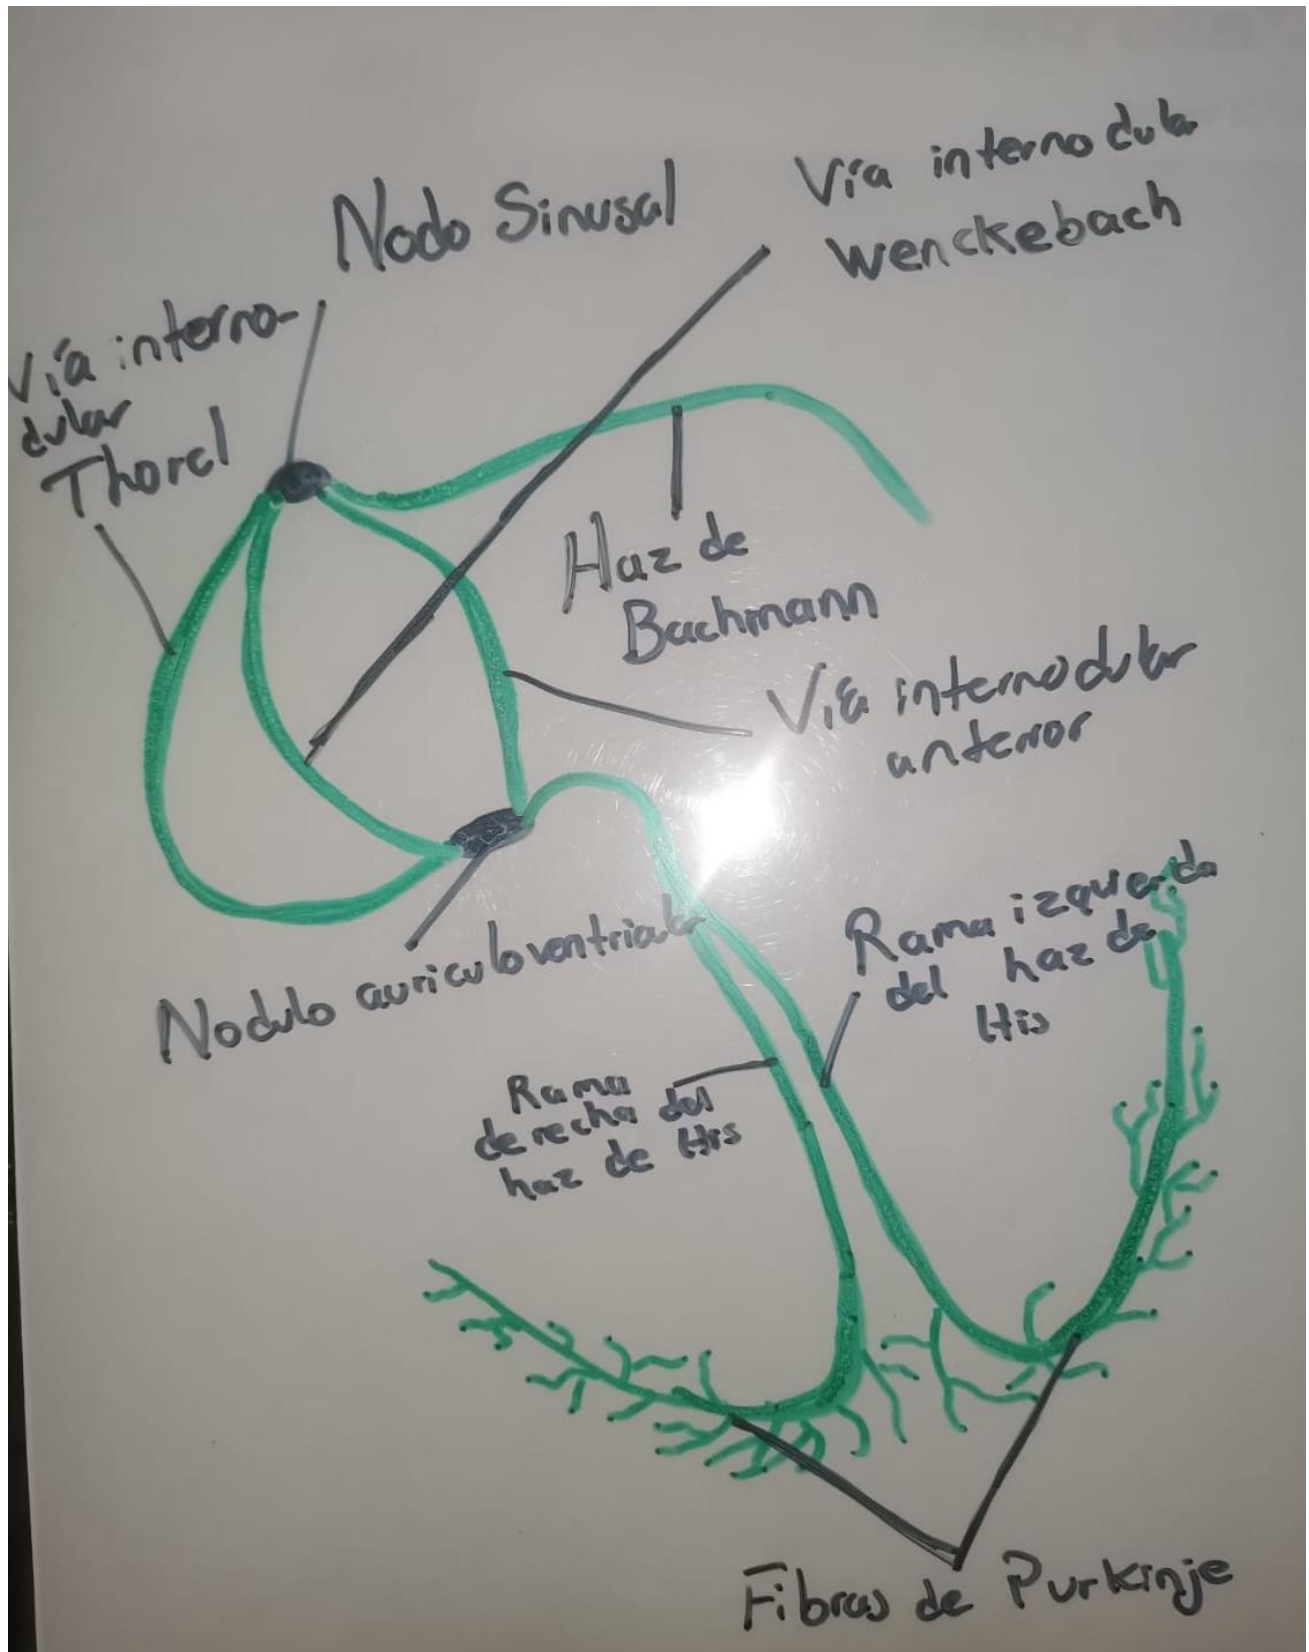 Nodo Sinusal
Vía internodular
Wenckebach
Vía interno-
dular
Thorel
Haz de
Bachmann
Vía internodular
anterior
Nodulo auriculoventricular
Rama izquierda
del haz de
His
Rama
derecha del
haz de His
Fibras de Purkinje